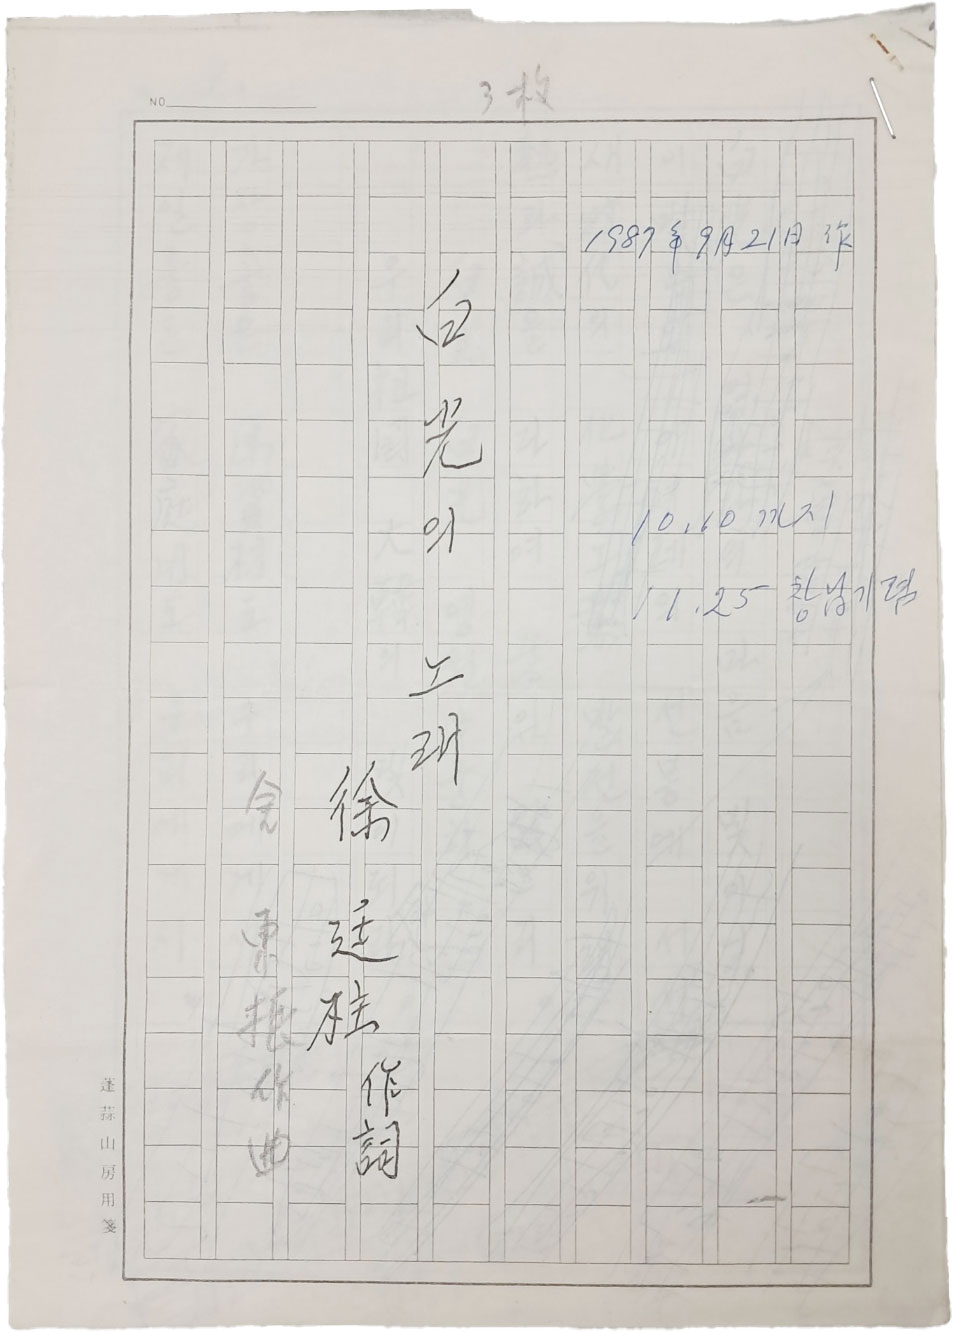 NO
3枚
1987年9月21日 作
10.10 까지
11.25 창남기념
白光의 노래
徐廷柱 作詞
金東振 作曲
蓬蒜山房用箋